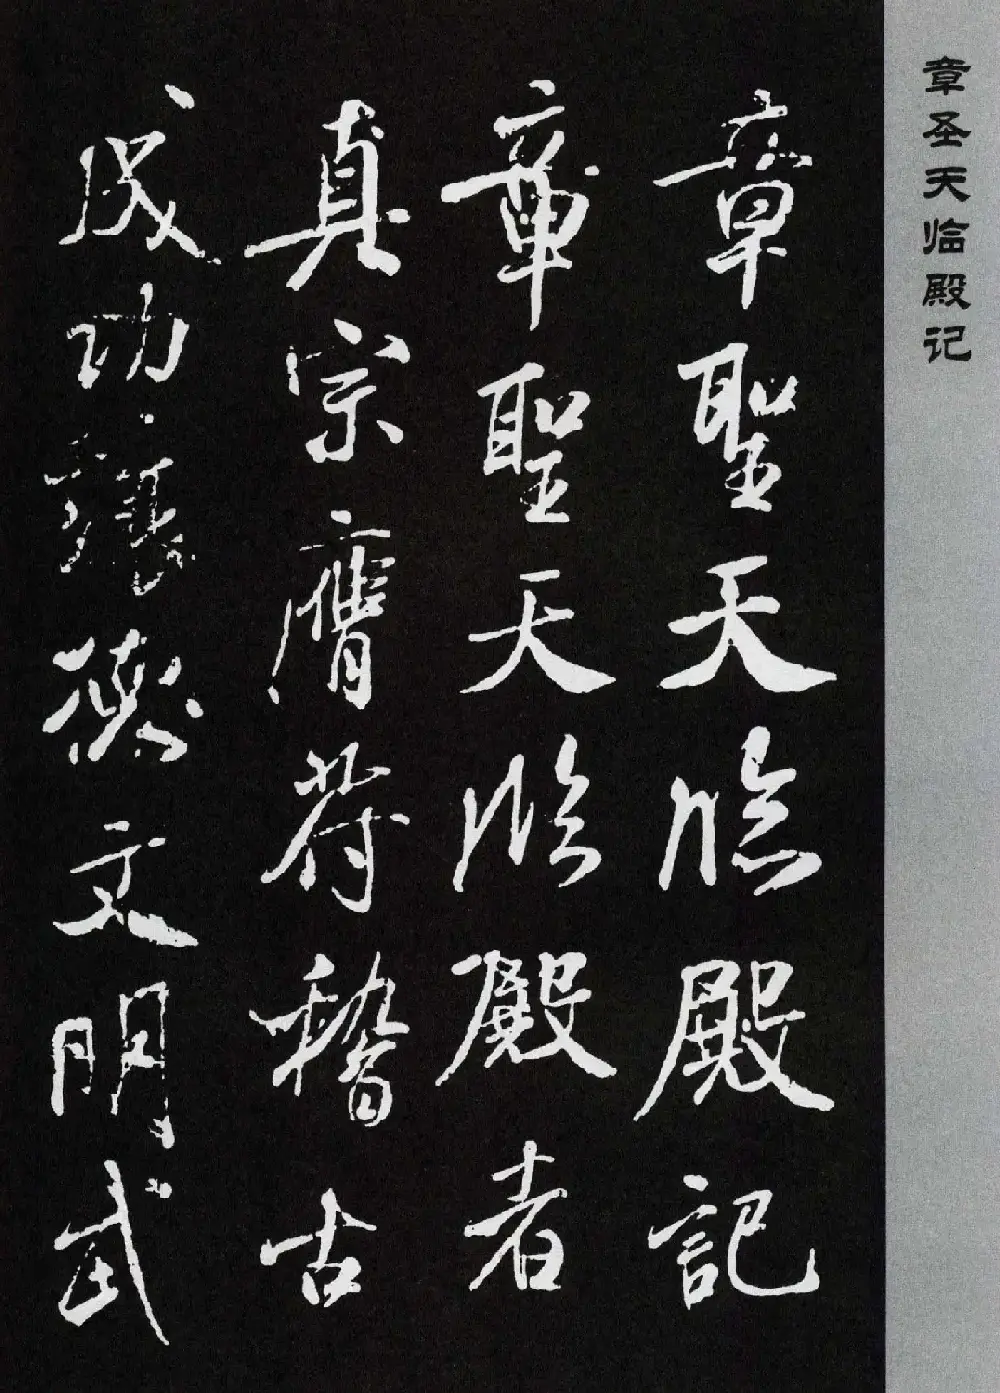 章圣天临殿记
章聖天臨殿記
章聖天臨殿者
真宗膺符稽古
成功讓德文明武